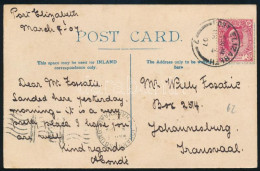 Port Elizabeth
March 8-07
POST CARD.
This space may be used for INLAND
correspondence only.
The address to be
Dear Mr Fosatie
Landed here yesterday
morning - it is a very
place I hope you
are well
Kind regards
Mr Willy Fosatie
Box 294
Johannesburg
Transvaal
62